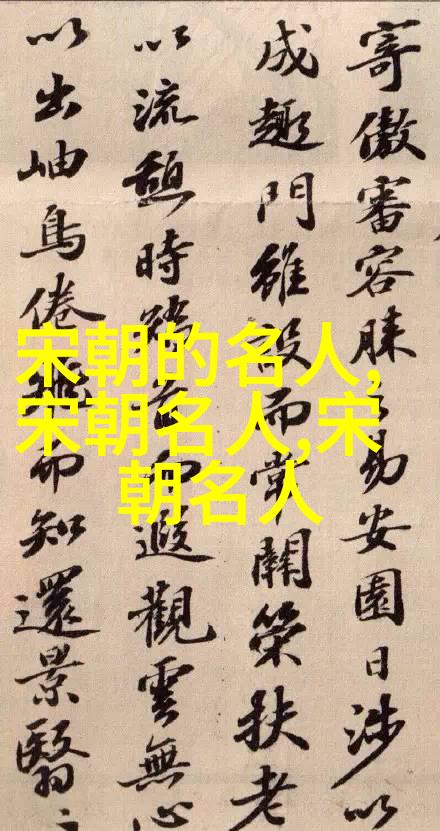 寄傲審容膝之易安園日涉以
成趣門雖設而常關策扶老
以流憩時矯首而遐觀雲無心
以出岫鳥倦飛而知還景翳〻
宋朝的名人,
宋朝名人,宋
朝名人